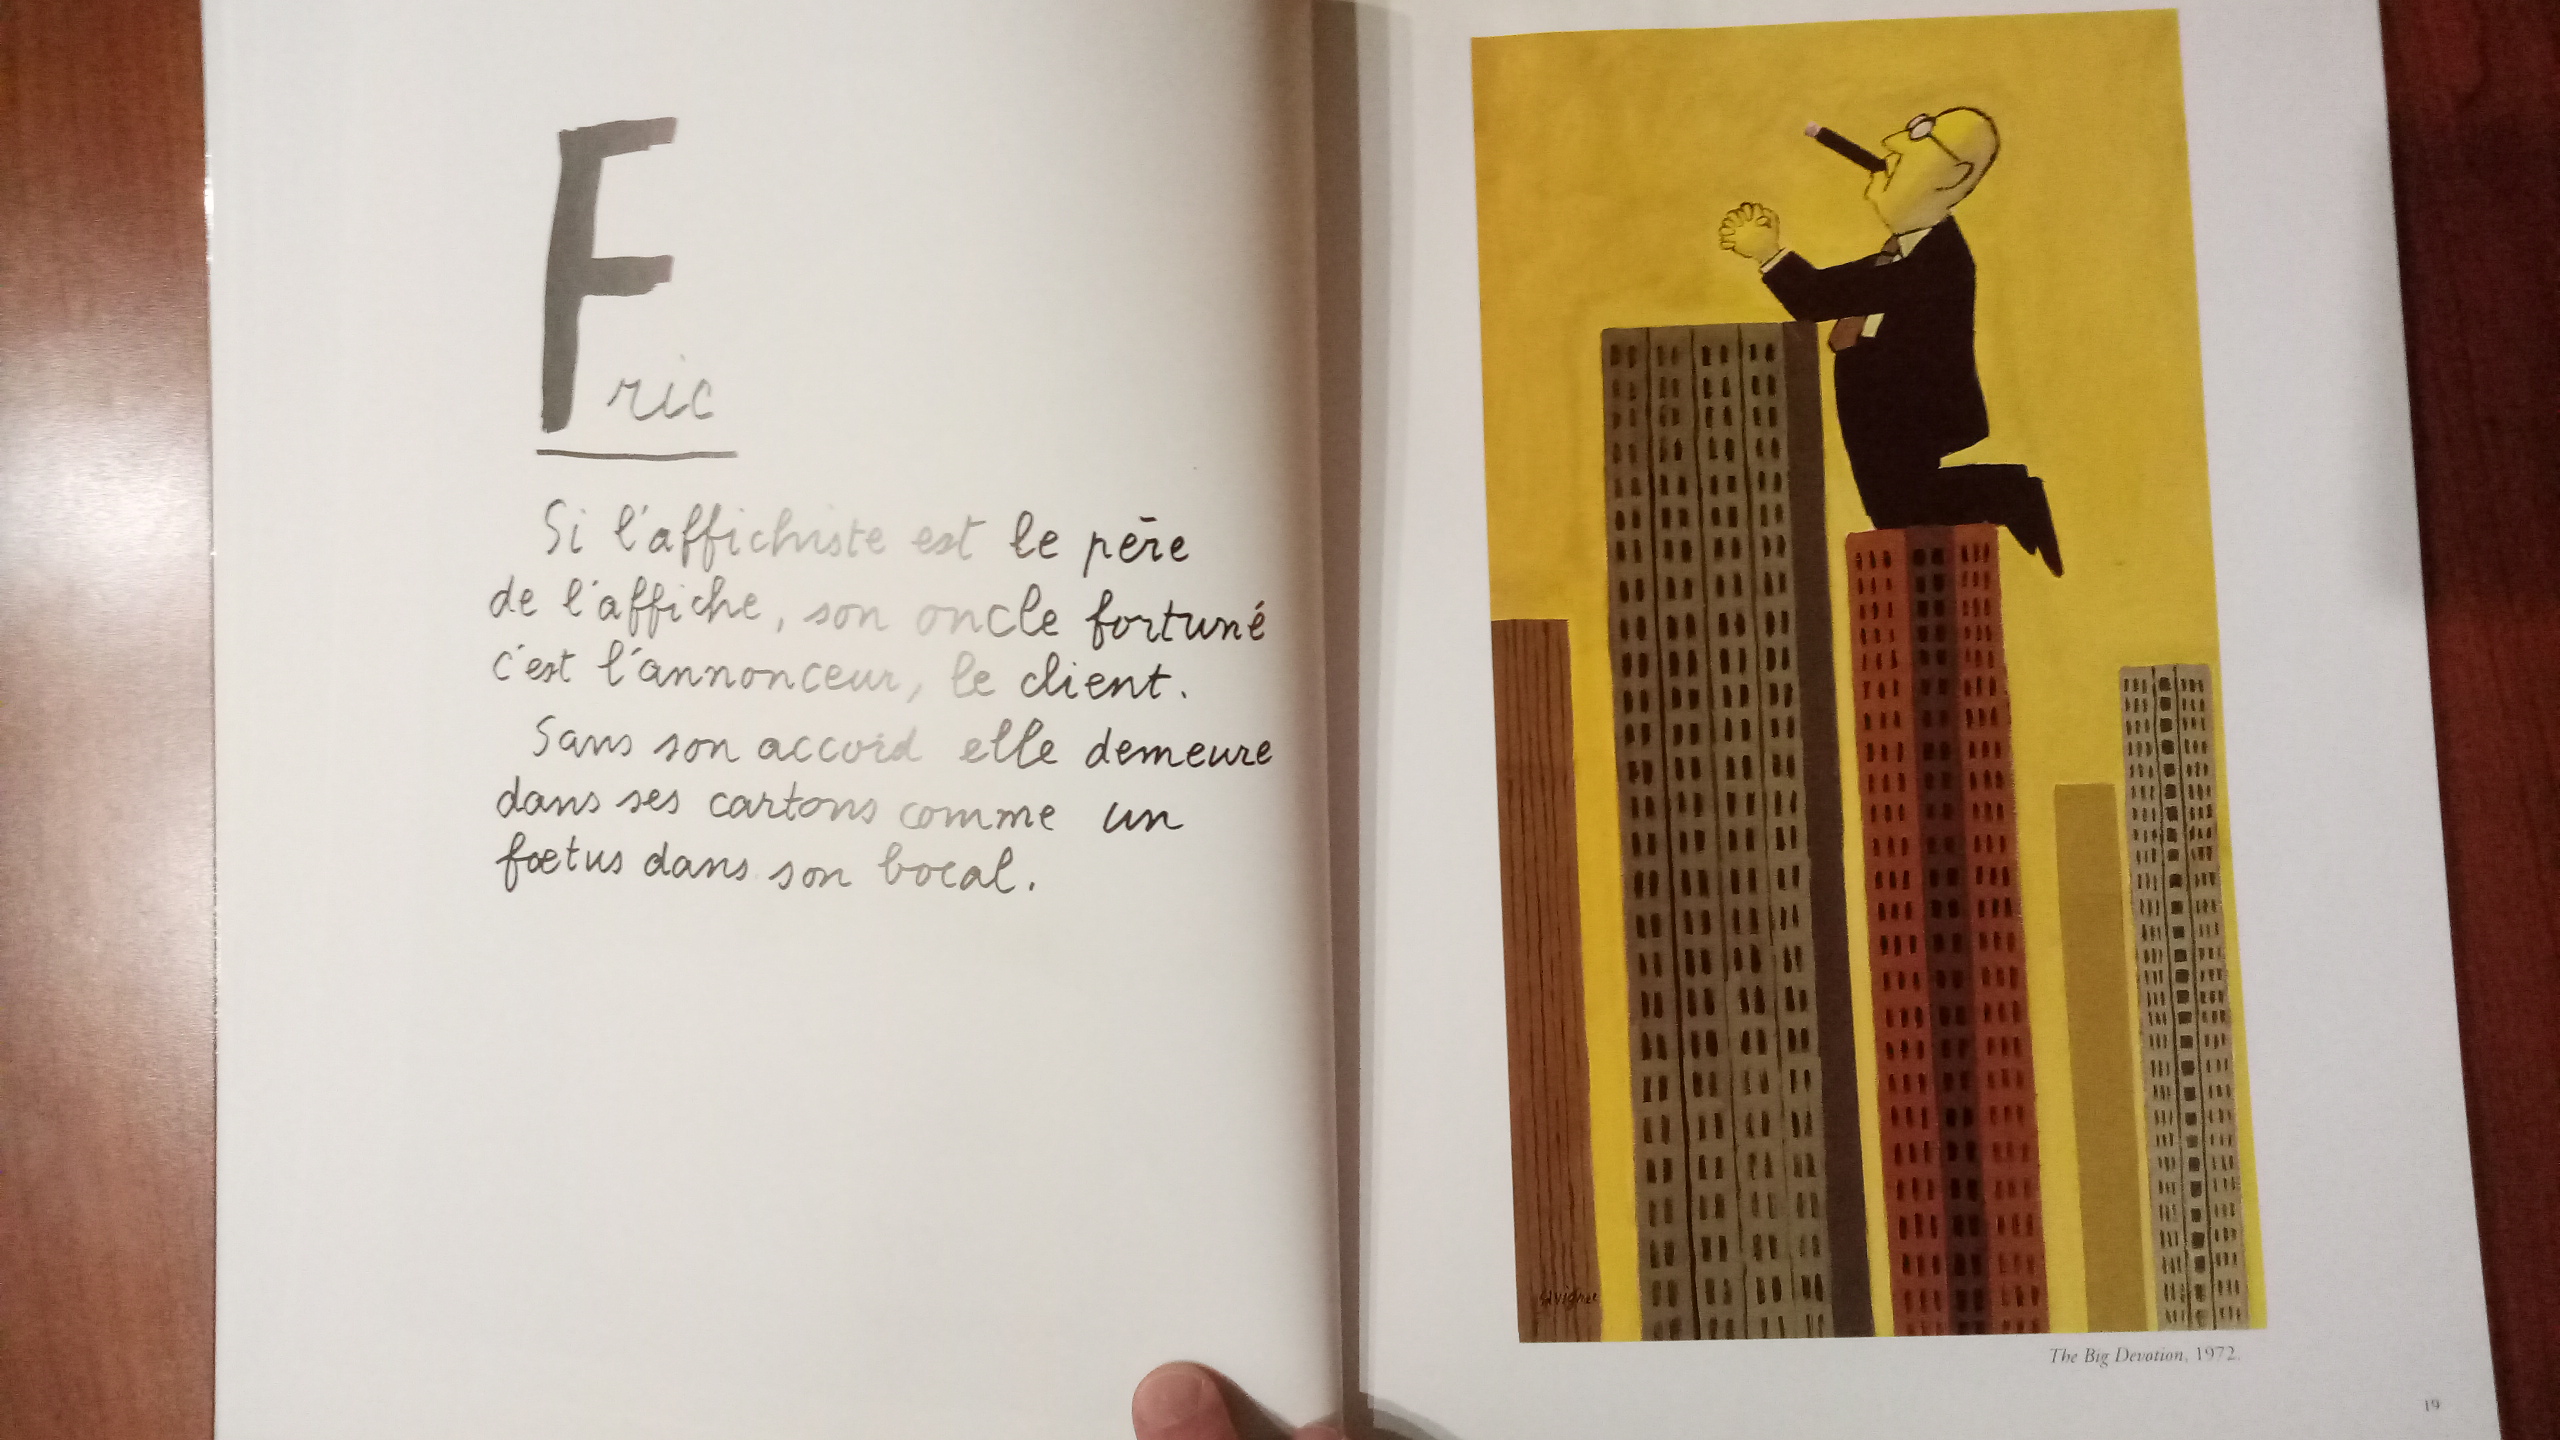 Fric
Si l'affichiste est le père
de l'affiche, son oncle fortuné
c'est l'annonceur, le client.
Sans son accord elle demeure
dans ses cartons comme un
fœtus dans son bocal.
Savignac
The Big Devotion, 1972.
19